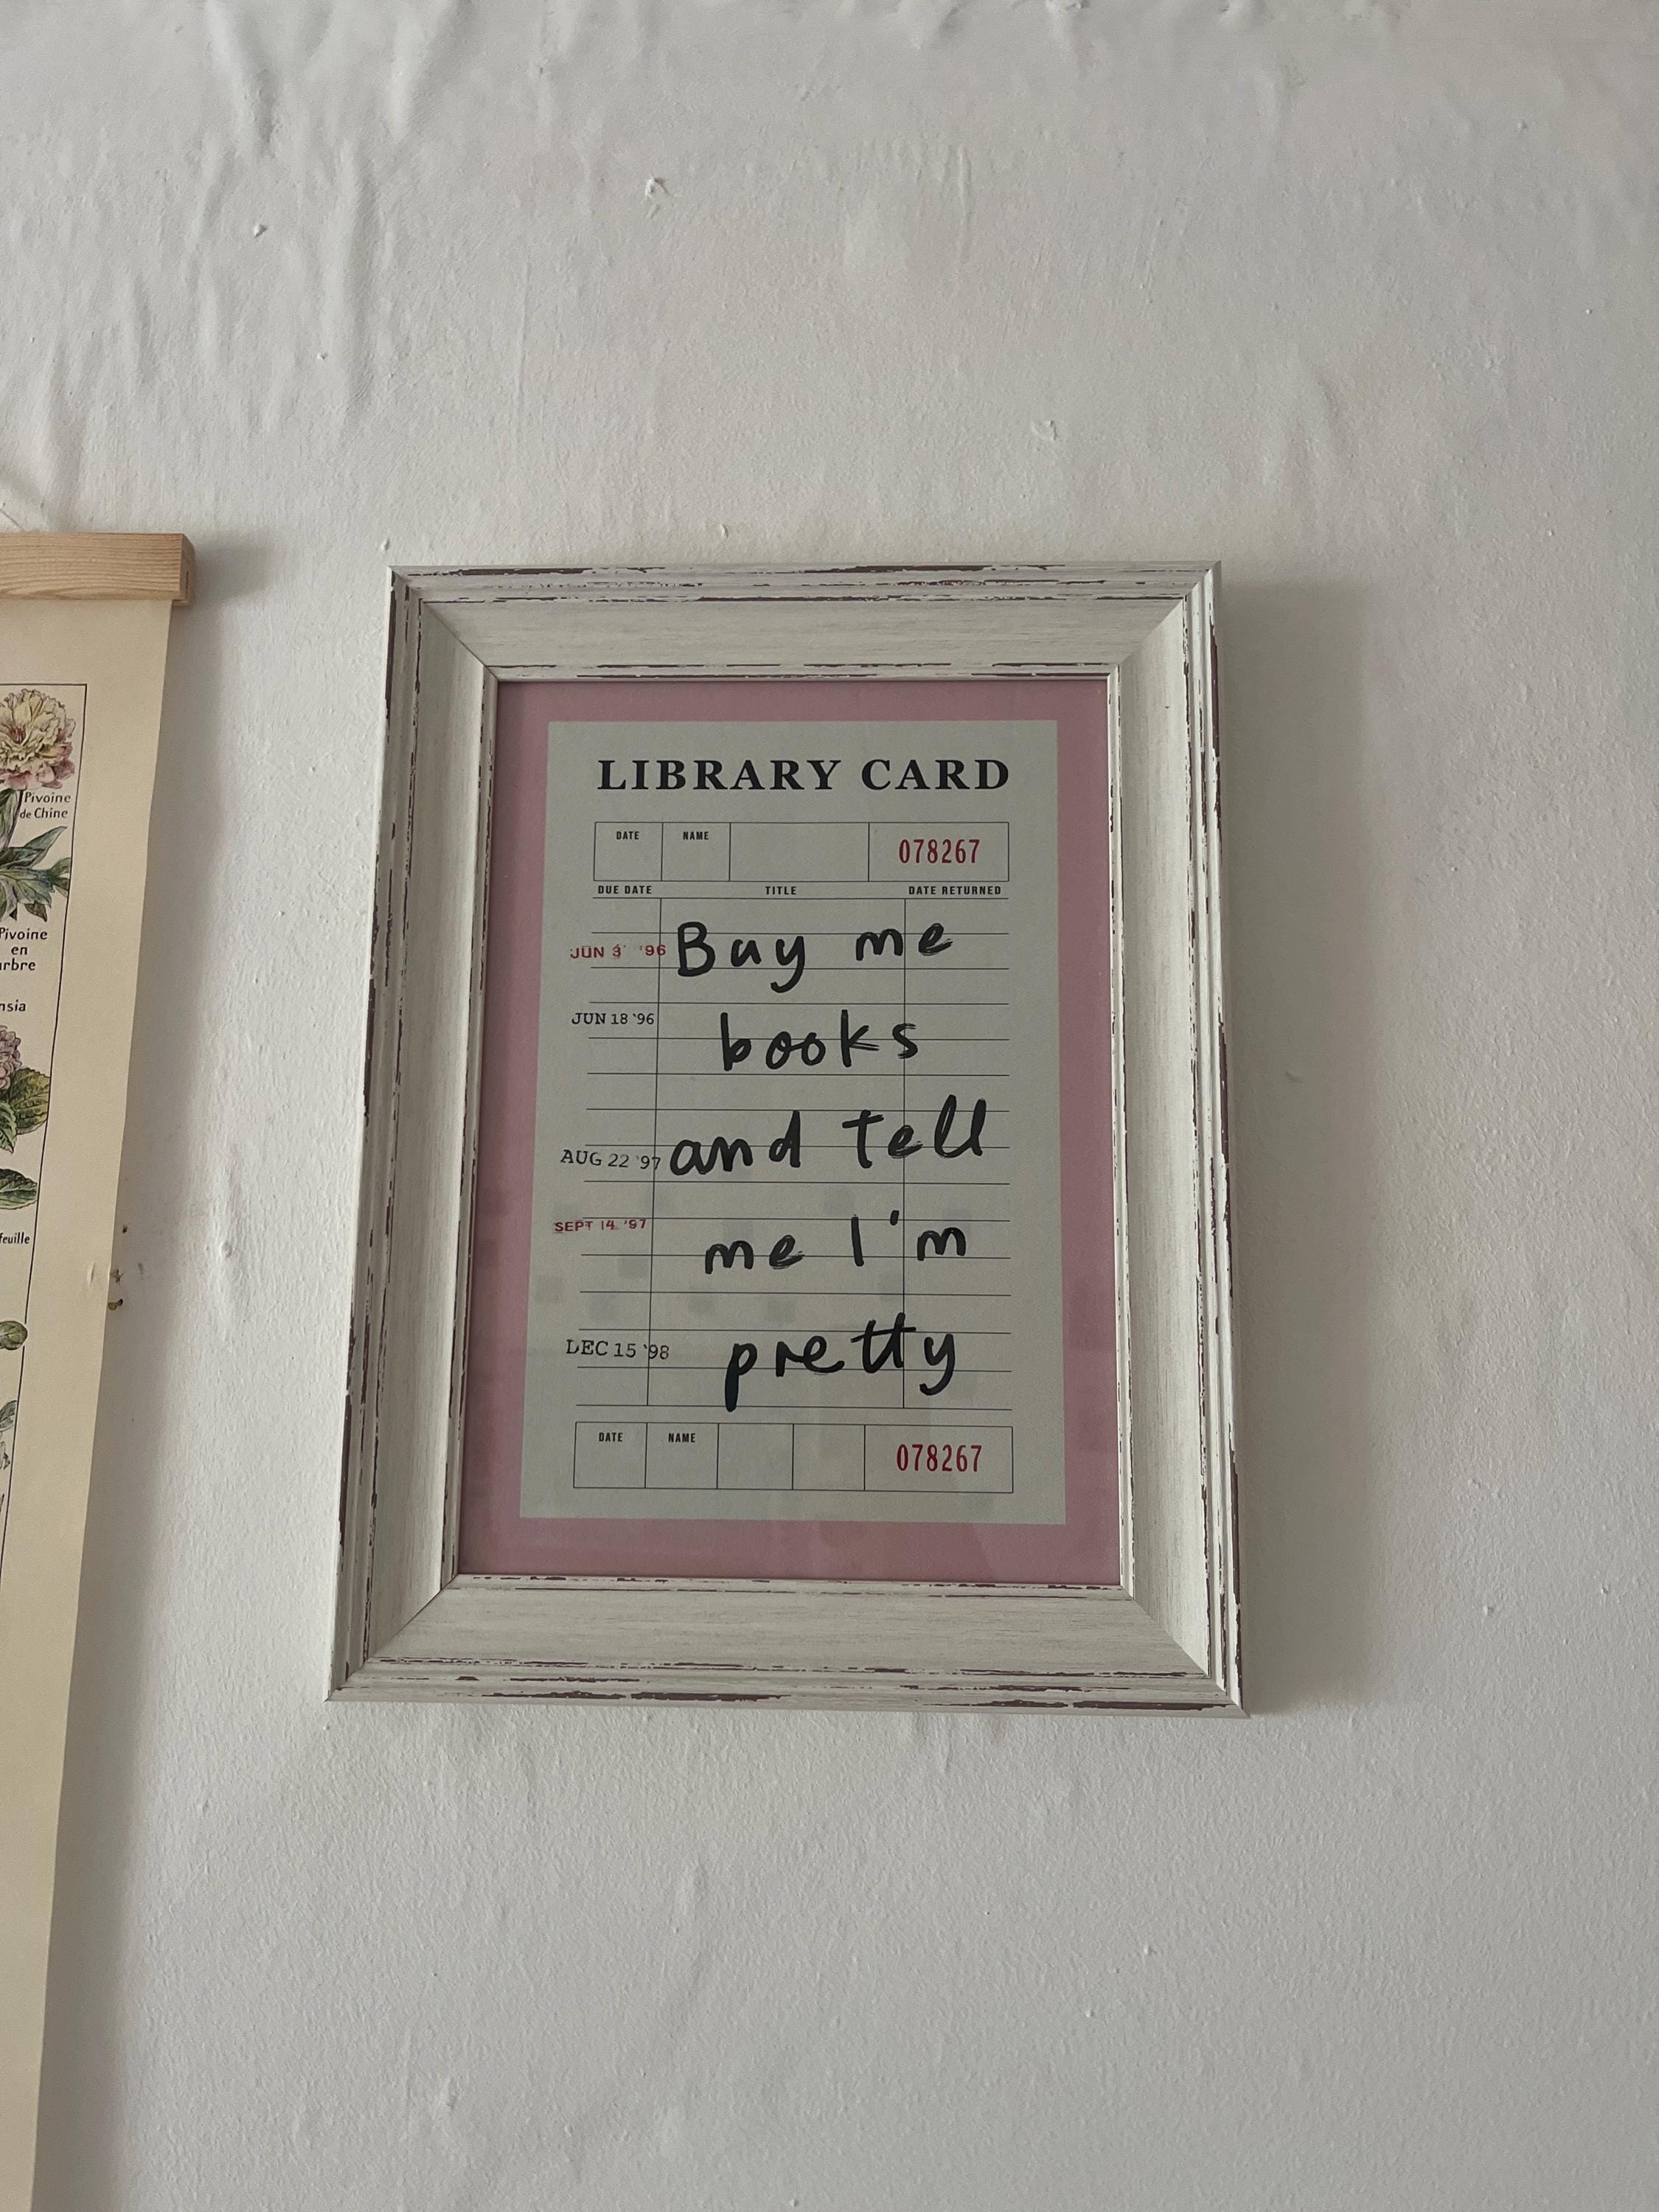 Pivoine
de Chine
Pivoine
en
LIBRARY CARD
DATE NAME 078267
DUE DATE TITLE DATE RETURNED
JUN 3 '96 Buy me
JUN 18 '96 books
AUG 22 '97 and tell
SEPT 14 '97 me I'm
DEC 15 '98 pretty
DATE NAME 078267